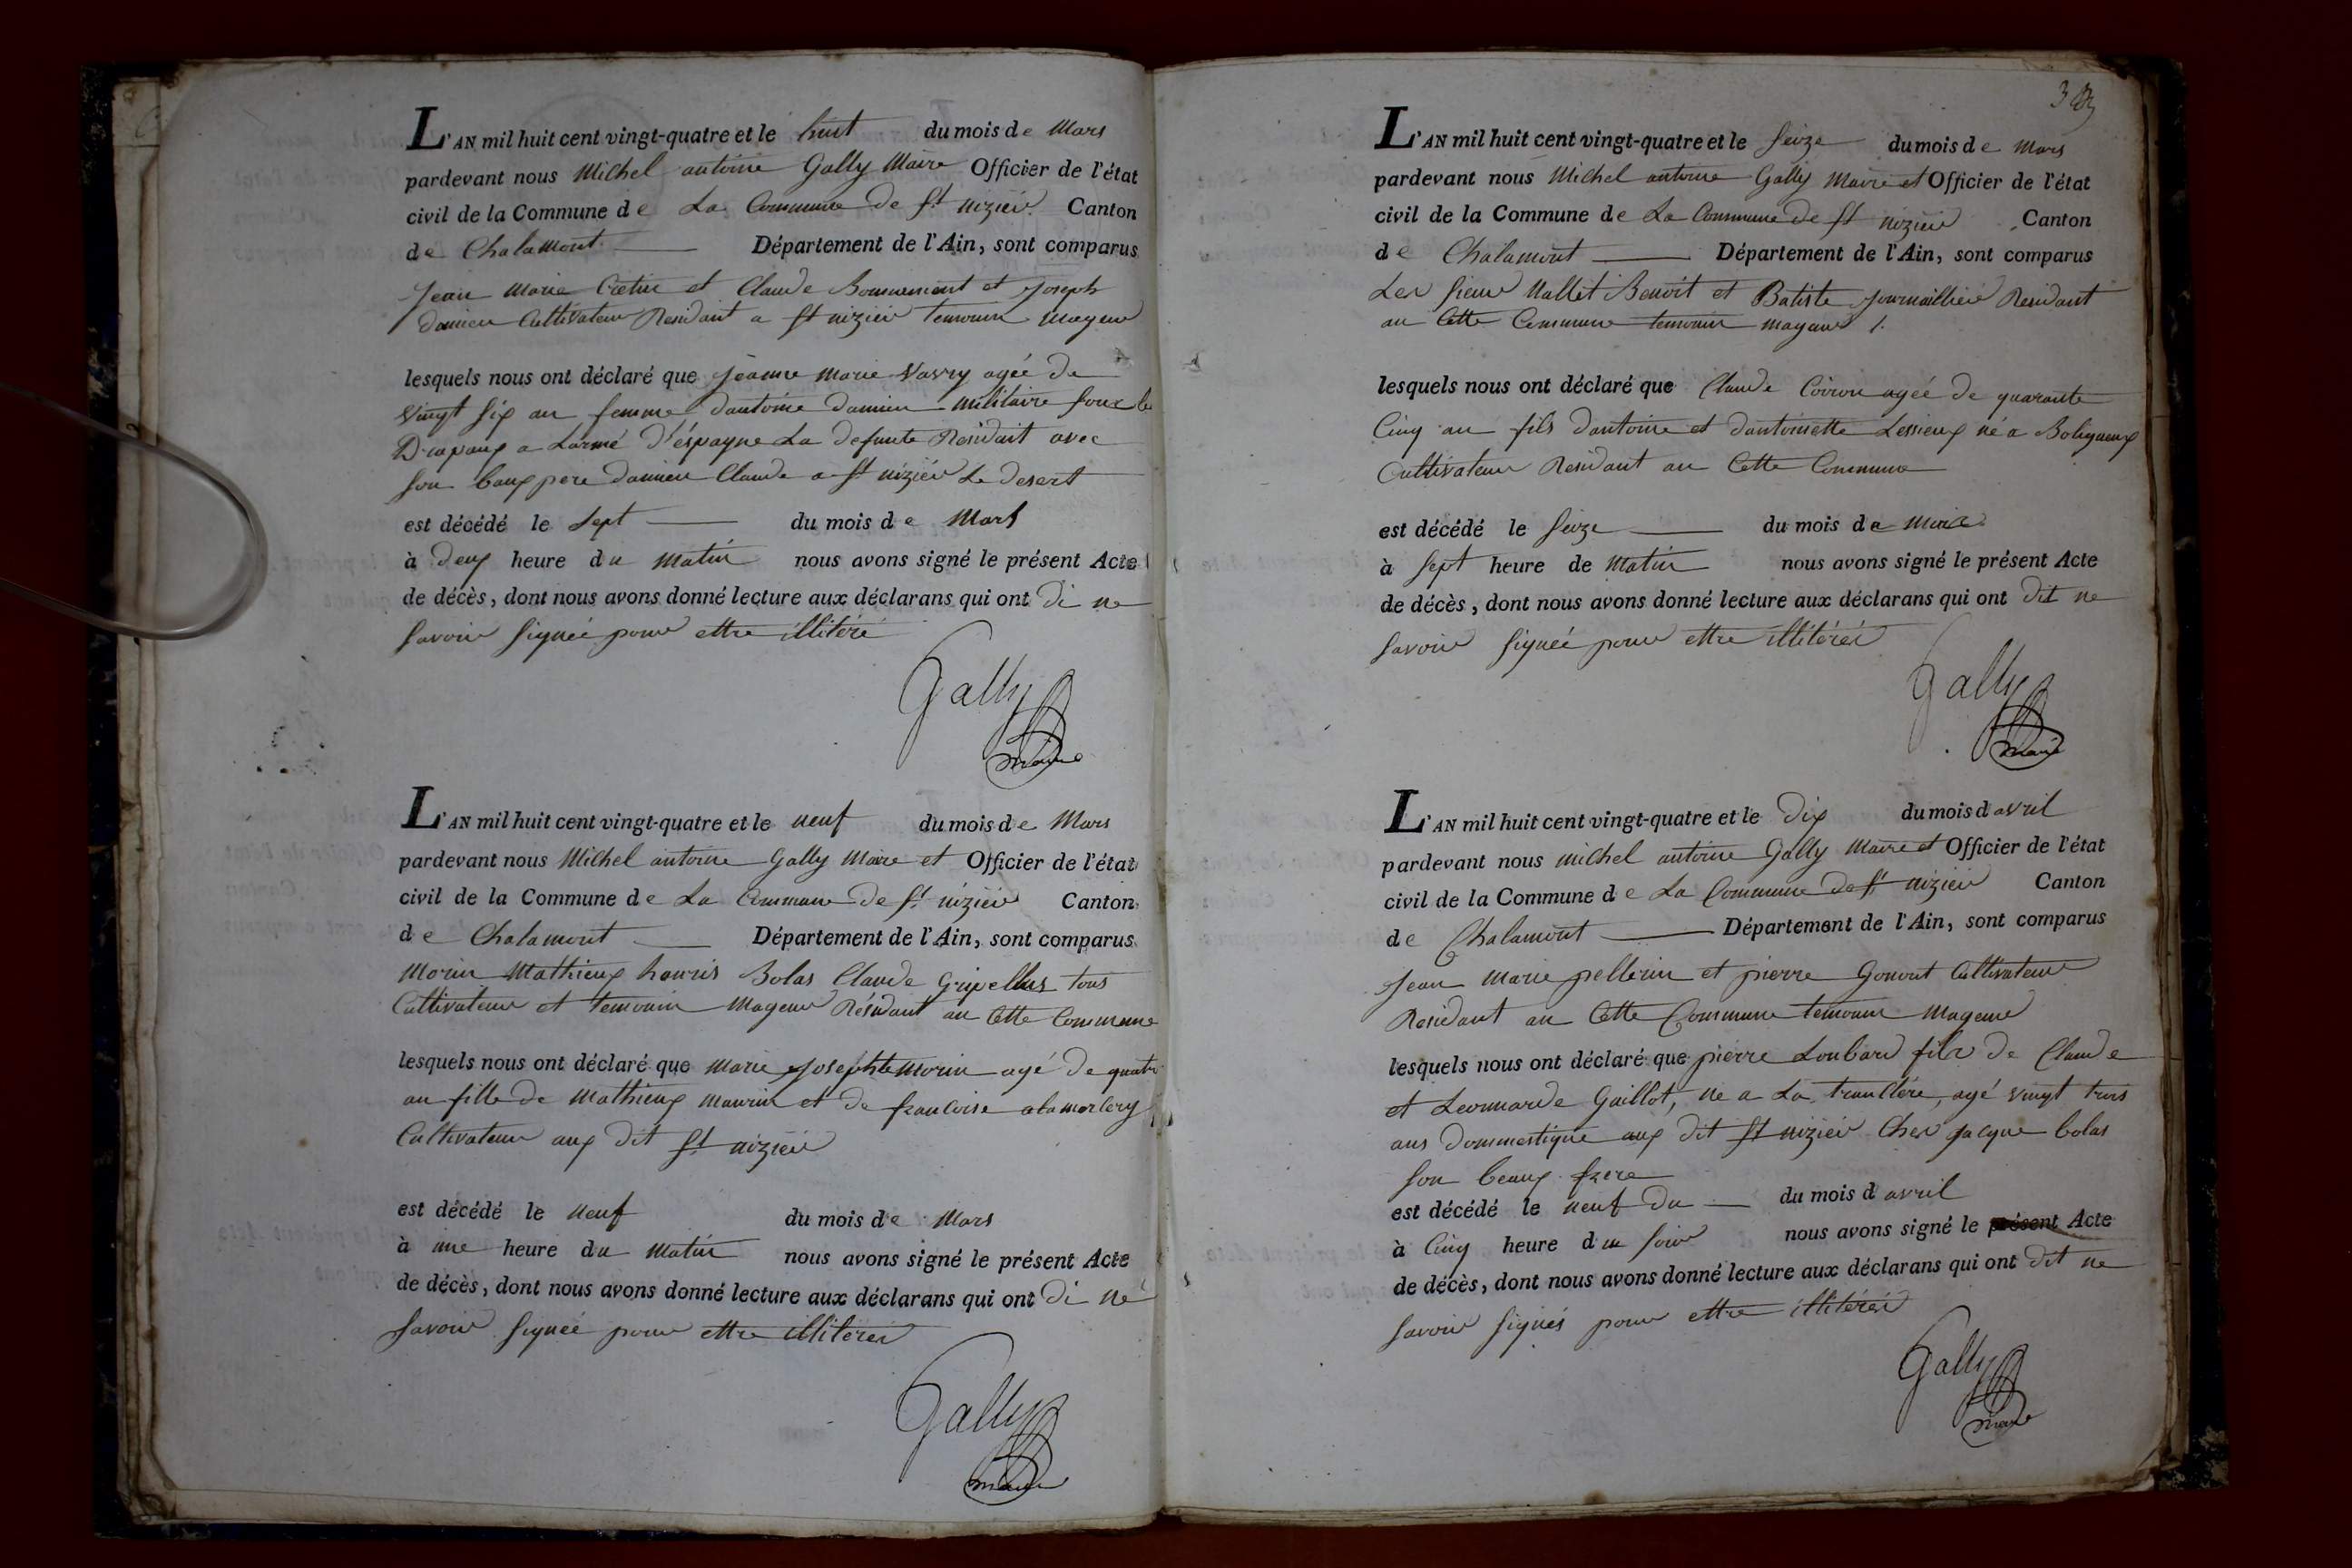 L'AN mil huit cent vingt-quatre et le huit du mois de Mars
pardevant nous Michel antoine Gally Maire Officier de l'état
civil de la Commune de La Commune de St nizier Canton
de Chalamont Département de l'Ain, sont comparus
Jean Marie et Claude et Joseph
damien Cultivateur Residant a St nizier temouin mageur
lesquels nous ont déclaré que jeanne Marie Vavry agée de
Vingt six an femme dantoine damien militaire sous le
Drapaux a Larmé d'éspagne La defunte Residait avec
son baux pere damien Claude a St niziér Le desert
est décédé le Sept du mois de Mars
à deux heure du Matin nous avons signé le présent Acte
de décès, dont nous avons donné lecture aux déclarans qui ont di ne
savoir signeé pour ettre illitéré
Gally
maire
L'AN mil huit cent vingt-quatre et le neuf du mois de Mars
pardevant nous Michel antoine Gally Maire et Officier de l'état
civil de la Commune de La Commune de St niziér Canton
de Chalamont Département de l'Ain, sont comparus
Morin Mathieux Bolas Claude tous
Cultivateur et temouin Mageur Résidant an Cette Commune
lesquels nous ont déclaré que Marie Josephte Morin agé de quatre
an fille de Mathieux Maurin et de francoise
Cultivateur aux dit St niziér
est décédé le neuf du mois de Mars
à une heure du Matin nous avons signé le présent Acte
de décès, dont nous avons donné lecture aux déclarans qui ont di né
savoir signeé pour ettre illiteres
Gally
maire
L'AN mil huit cent vingt-quatre et le seize du mois de Mars
pardevant nous Michel antoine Gally Maire et Officier de l'état
civil de la Commune de La Commune de St nizier Canton
de Chalamont Département de l'Ain, sont comparus
Les sieur Mallet Benoit et Batiste Journaillier Residant
an Cette Commune temouin mageur
lesquels nous ont déclaré que Claude Coiron agée de quarante
Cinq an fils dantoine et dantoinette Lessieux né a Boligneux
Cultivateur Residant an Cette Commune
est décédé le seize du mois de
à sept heure de Matin nous avons signé le présent Acte
de décès, dont nous avons donné lecture aux déclarans qui ont dit ne
savoir signeé pour ettre illitérés
Gally
maire
L'AN mil huit cent vingt-quatre et le dix du mois d avril
pardevant nous michel antoine Gally Maire et Officier de l'état
civil de la Commune de La Commune de St nizier Canton
de Chalamont Département de l'Ain, sont comparus
Jean Marie pellerin et pierre Gonout Cultivateur
Residant an Cette Commune temouin Mageur
lesquels nous ont déclaré que pierre Loubard fils de Claude
et Leonnarde Gaillot, ne a La tranclére, agé vingt trois
ans dommestique aux dit St niziér Cher Jacque bolas
son beaux frere
est décédé le neuf du du mois d avril
à Cinq heure du soir nous avons signé le présent Acte
de décès, dont nous avons donné lecture aux déclarans qui ont dit ne
savoir signés pour ettre illitérés
Gally
maire